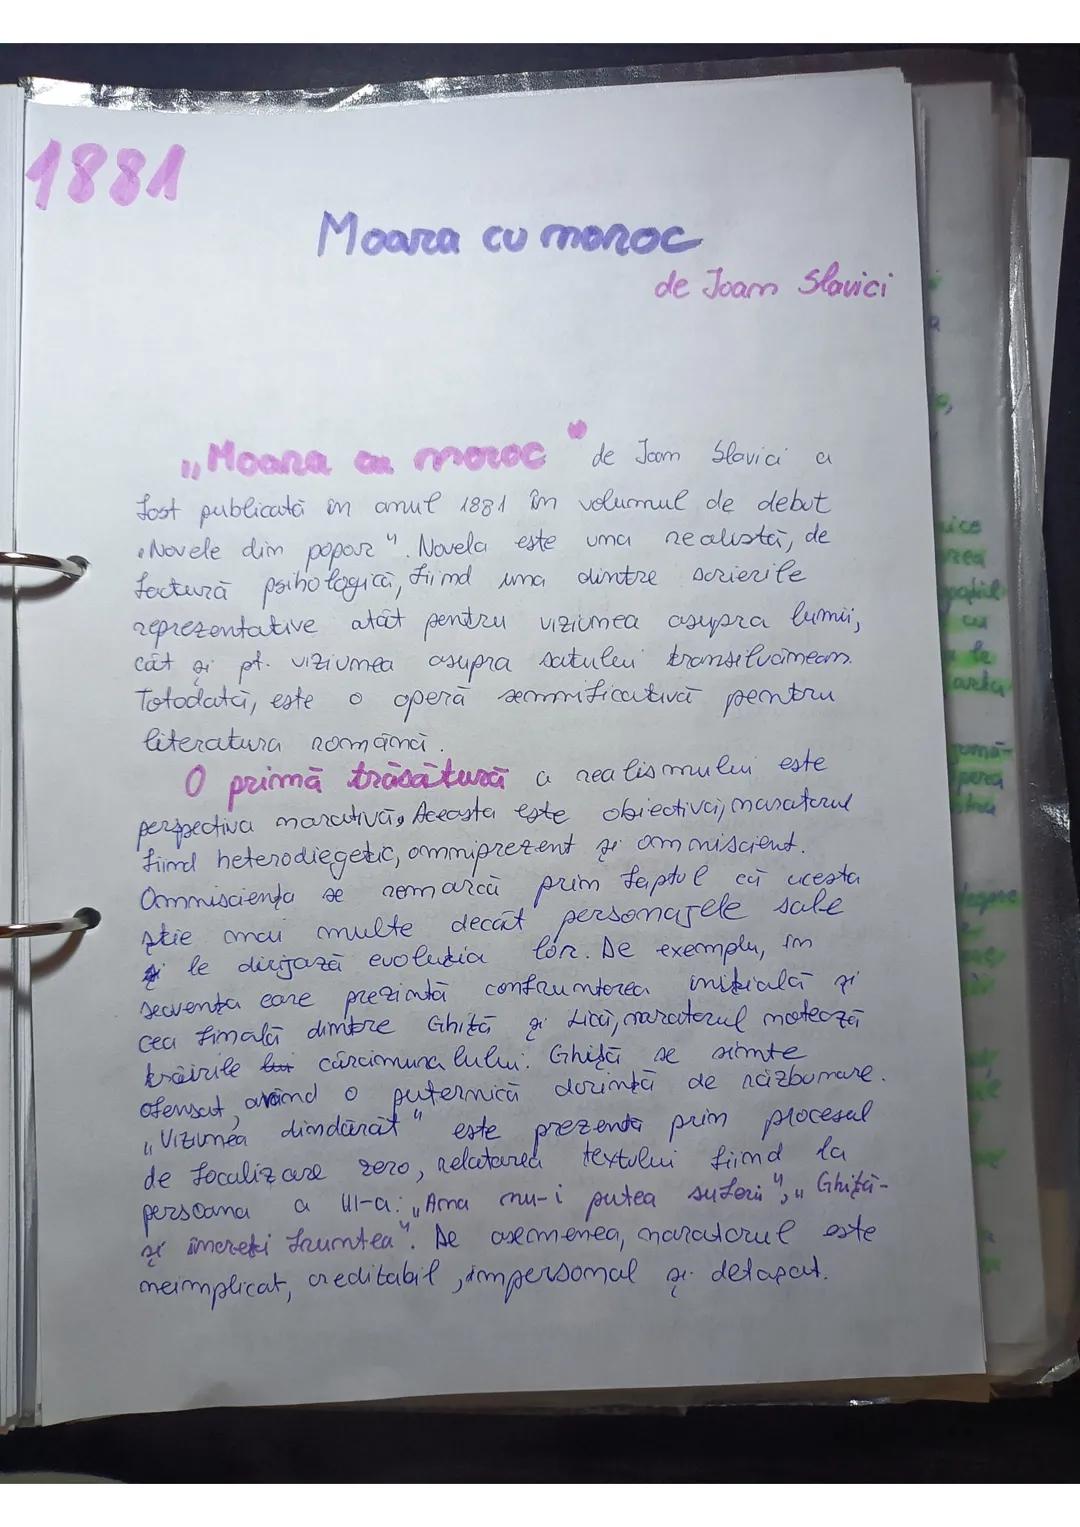 1881
Moara cu noroc
de Ioan Slavici
„Moara cu noroc" de Ioan Slavici a
fost publicată în anul 1881 în volumul de debut
„Novele din popor". Novela este una realistă, de
factură psihologică, fiind una dintre scrierile
reprezentative atât pentru viziunea asupra lumii,
cât și pt. viziunea asupra satului transilvănean.
Totodată, este o operă semnificativă pentru
literatura română.
O primă trăsătură a realismului este
perspectiva narativă, Aceasta este obiectivă, naratorul
fiind heterodiegetic, omniprezent și omniscient.
Omnisciența se remarcă prin faptul că acesta
știe mai multe decât personajele sale
și le dirijază evoluția lor. De exemplu, în
secvența care prezintă confruntarea inițială și
cea finală dintre Ghiță și Lică, naratorul notează
trăirile lui cârciumarului. Ghiță se simte
ofensat, având o puternică dorință de răzbunare.
„Viziunea dindărăt" este prezentă prin procesul
de focalizare zero, relatarea textului fiind la
persoana a III-a: „Ana nu-i putea suferi", „Ghiță-
și încreți fruntea". De asemenea, naratorul este
neimplicat, creditabil, impersonal și detașat.